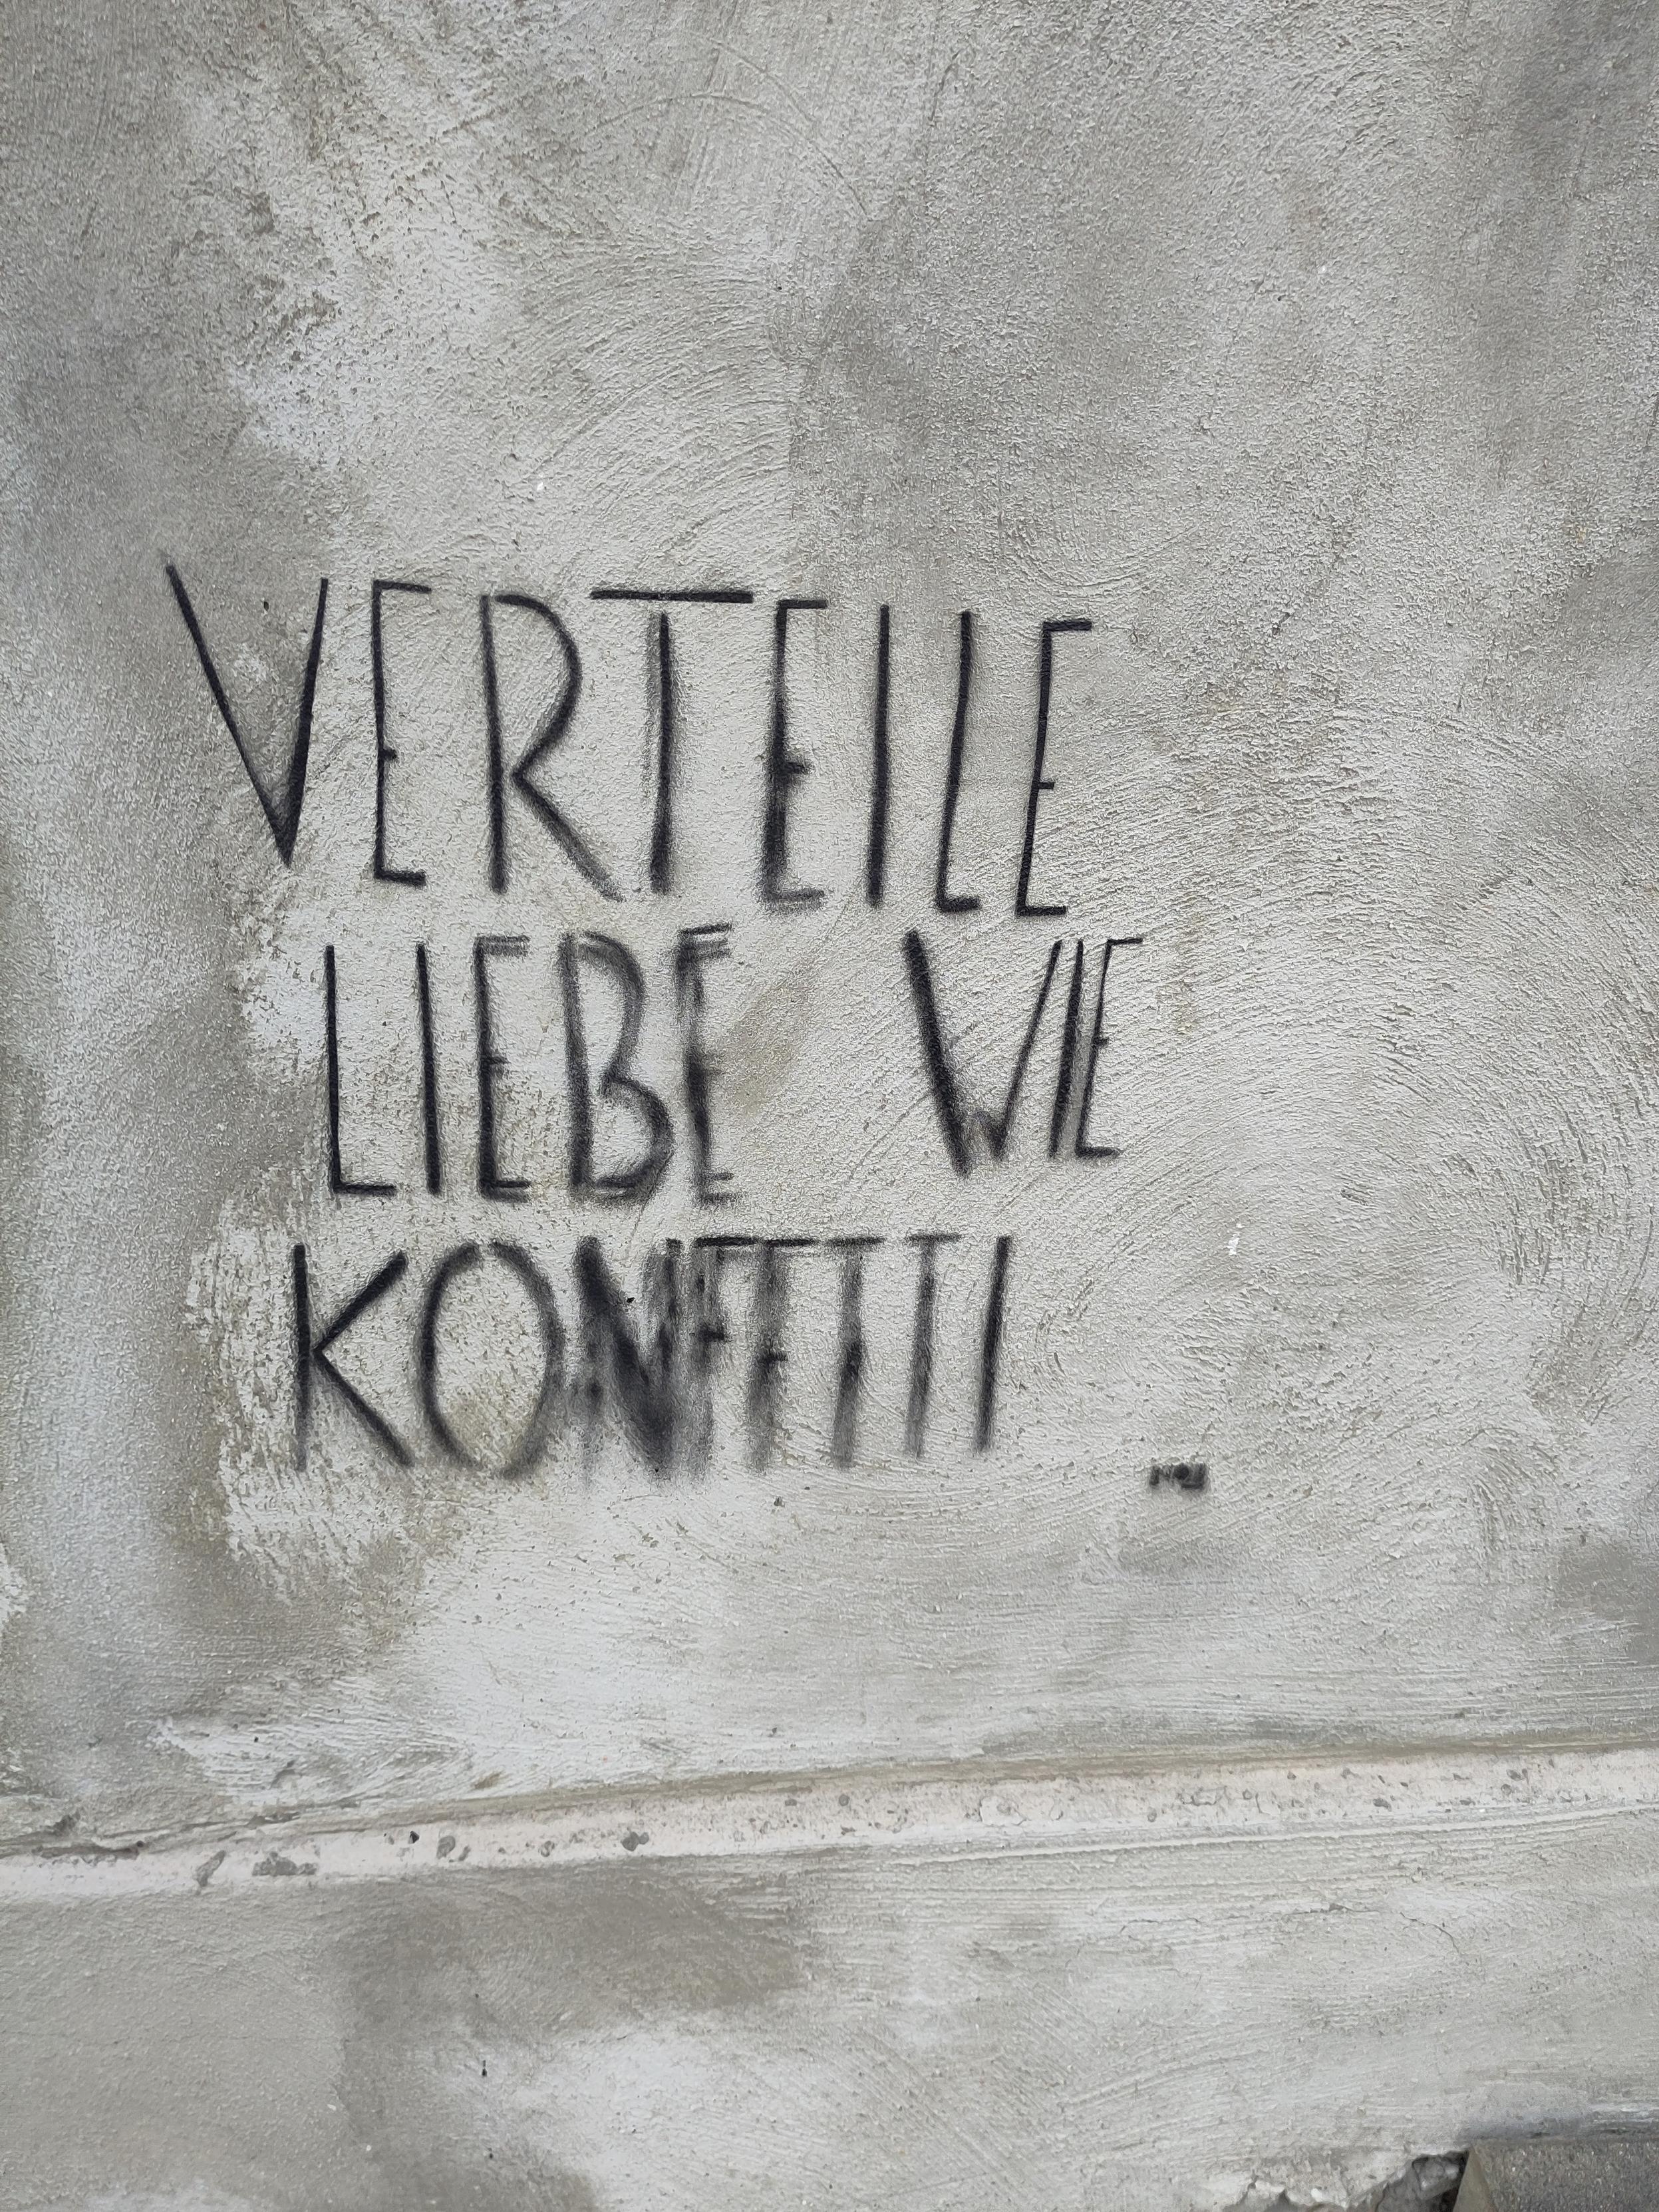 VERTEILE
LIEBE WIE
KONFETTI